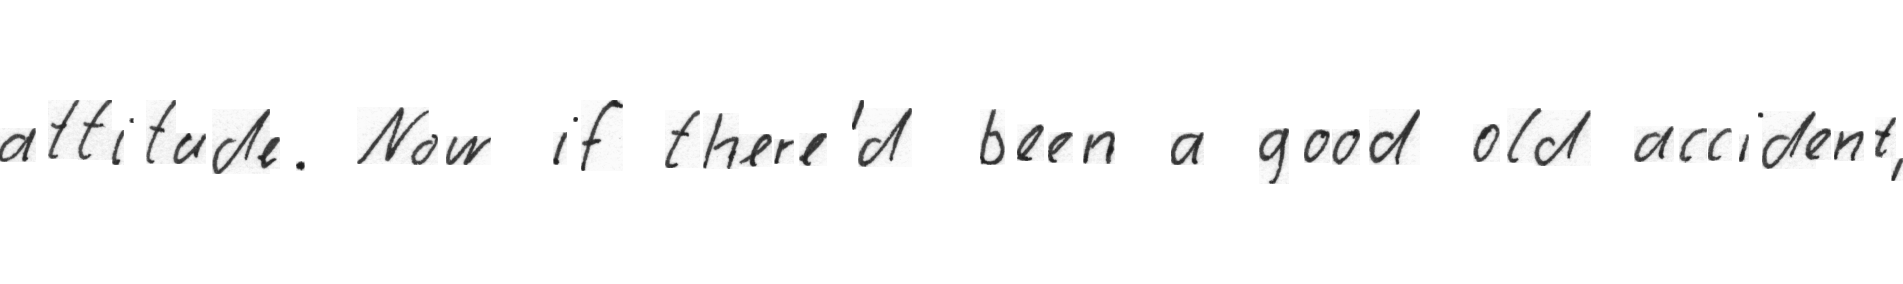 attitude. Now if there'd been a good old accident,